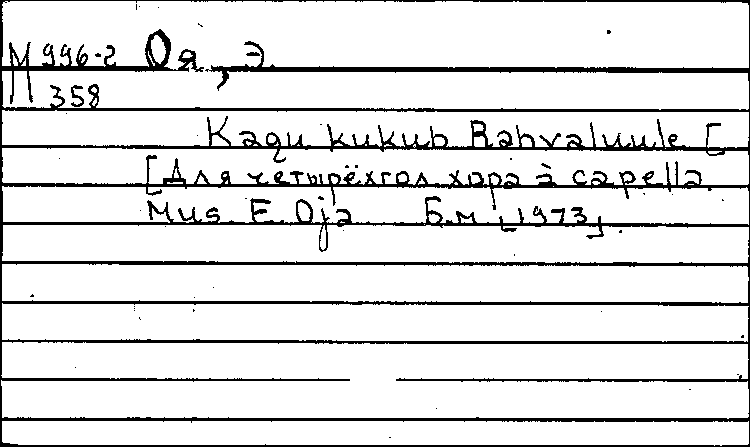 М 996-2 Оя, Э.
358
Kagu kukub Rahvaluule [
[Для четырёхгол. хора à capella.
Mus. E. Oja Б.м. [1973].